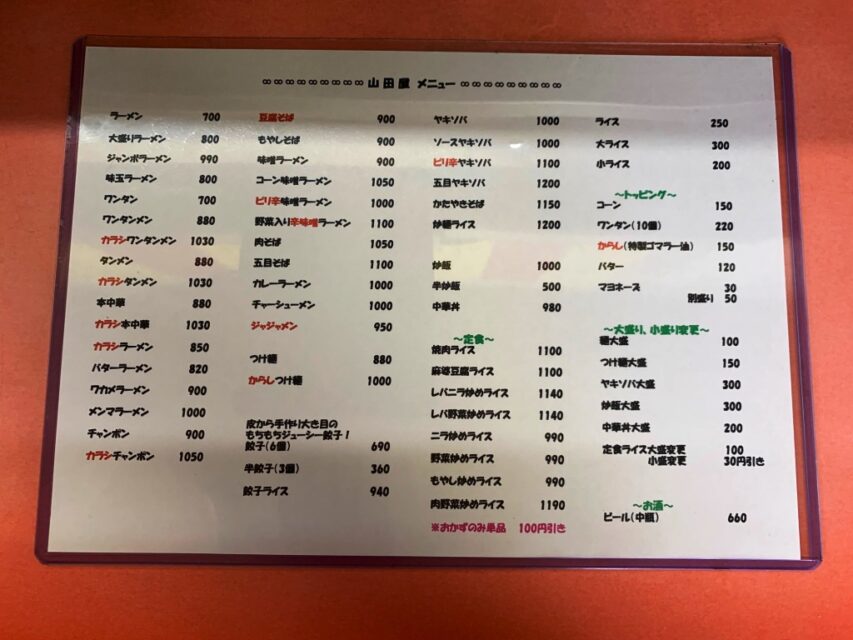 ∞∞∞∞∞∞∞∞∞ 山田屋 メニュー ∞∞∞∞∞∞∞∞∞
ラーメン 700
大盛りラーメン 800
ジャンボラーメン 990
味玉ラーメン 800
ワンタン 700
ワンタンメン 880
カラシワンタンメン 1030
タンメン 880
カラシタンメン 1030
本中華 880
カラシ本中華 1030
カラシラーメン 850
バターラーメン 820
ワカメラーメン 900
メンマラーメン 1000
チャンポン 900
カラシチャンポン 1050
豆腐そば 900
もやしそば 900
味噌ラーメン 900
コーン味噌ラーメン 1050
ピリ辛味噌ラーメン 1000
野菜入り辛味噌ラーメン 1100
肉そば 1050
五目そば 1100
カレーラーメン 1000
チャーシューメン 1000
ジャジャメン 950
つけ麺 880
からしつけ麺 1000
皮から手作り大き目の
もちもちジューシー餃子！
餃子(6個) 690
半餃子(3個) 360
餃子ライス 940
ヤキソバ 1000
ソースヤキソバ 1000
ピリ辛ヤキソバ 1100
五目ヤキソバ 1200
かたやきそば 1150
炒麺ライス 1200
炒飯 1000
半炒飯 500
中華丼 980
～定食～
焼肉ライス 1100
麻婆豆腐ライス 1100
レバニラ炒めライス 1140
レバ野菜炒めライス 1140
ニラ炒めライス 990
野菜炒めライス 990
もやし炒めライス 990
肉野菜炒めライス 1190
※おかずのみ単品 100円引き
ライス 250
大ライス 300
小ライス 200
～トッピング～
コーン 150
ワンタン(10個) 220
からし(特製ゴマラー油) 150
バター 120
マヨネーズ 30
別盛り 50
～大盛り、小盛り変更～
麺大盛 100
つけ麺大盛 150
ヤキソバ大盛 300
炒飯大盛 300
中華丼大盛 200
定食ライス大盛変更 100
小盛変更 30円引き
～お酒～
ビール(中瓶) 660